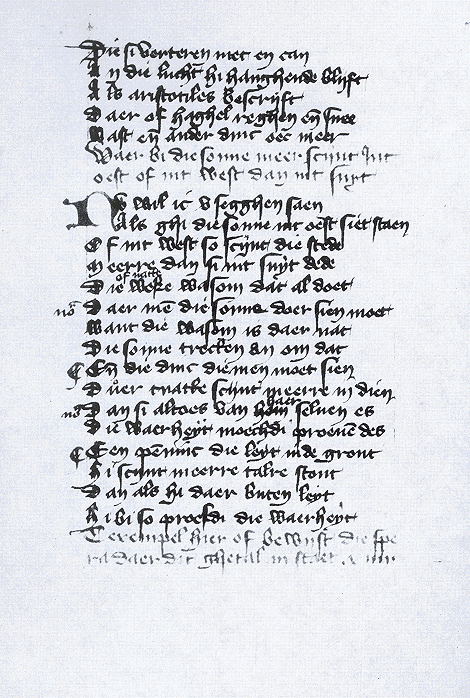 Die si verteren niet en can
An die lucht hi hanghende blijft
Als aristotiles bescrijft
Daer of haghel reghen en̄ snee
Wast en̄ ander dinc oec meer
Waer bi die sonne meer scijnt int
oest of int west dan int suyt
Nv wil ic v segghen saen
Als ghi die sonne int oest siet staen
Of int west so scijnt die stede
Meerre dan si int suyt dede
of natte
Die weke wasom dat al doet
no Daer mē die sonne doer sien moet
Want die wasom is daer nat
Die sonne trecken an om dat
En̄ die dinc die men moet sien
Duer tnatte scijnt meerre in dien
haer
no Dan si altoes van hem seluen es
Die waerheyt moechdi proeuen des
Een pēninc die leyt inde gront
Hi scijnt meerre talre stont
Dan als hi daer buten leyt
Hi bi so proefdi die waerheyt
Texempel hier of bewijst die spe
ra daer dit ghetal in staet